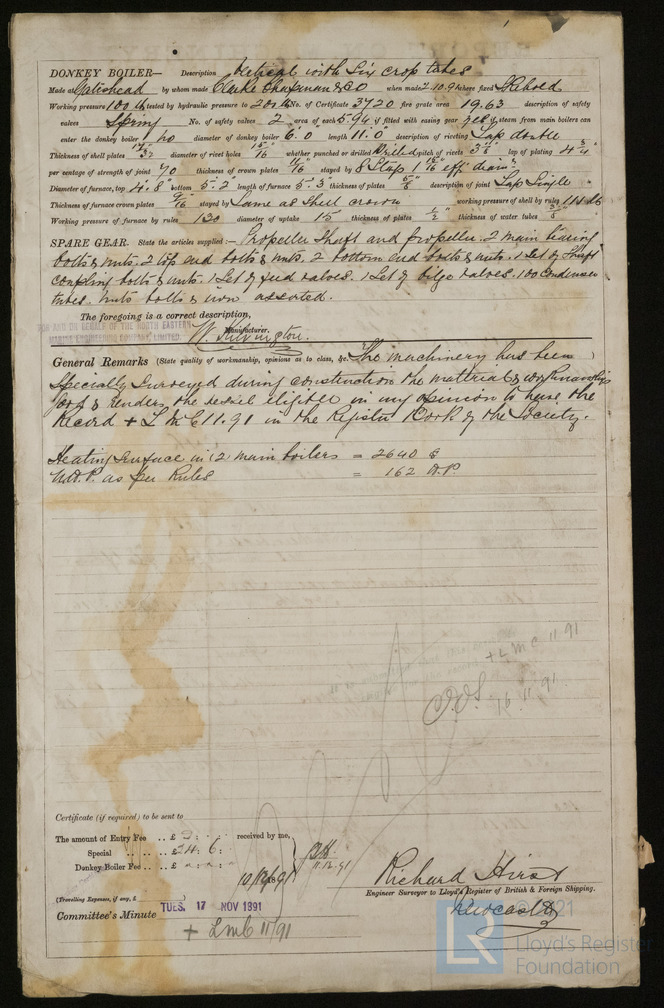 DONKEY BOILER— Description Vertical with Six crop tubes
Made at Gateshead by whom made Clarke Chapman & Co when made 2.10.91 where fixed Stokehold
Working pressure 100 lb tested by hydraulic pressure to 200 lb No. of Certificate 3720 fire grate area 19.63 description of safety
valves Spring No. of safety valves 2 area of each 5.94 if fitted with easing gear yes if steam from main boilers can
enter the donkey boiler no diameter of donkey boiler 6'.0 length 11'.6 description of riveting Lap double
Thickness of shell plates 17/32 diameter of rivet holes 15/16 whether punched or drilled Drilled pitch of rivets lap of plating 4 3/4
per centage of strength of joint 70 thickness of crown plates 11/16 stayed by 8 Stays 1 15/16 eff diam
Diameter of furnace, top 4'.8" bottom 5'.2 length of furnace 5'.3 thickness of plates description of joint Lap Single
Thickness of furnace crown plates 9/16 stayed by Same as Shell crown working pressure of shell by rules
Working pressure of furnace by rules 120 diameter of uptake 15 thickness of plates 1/2 thickness of water tubes 3/8
SPARE GEAR. State the articles supplied:— Propeller Shaft and propeller. 2 main bearing
bolts & nuts. 2 top end bolts & nuts. 2 bottom end bolts & nuts. 1 Set of Shaft
coupling bolts & nuts. 1 Set of feed valves. 1 Set of bilge valves. 100 Condenser
tubes. nuts bolts & iron assorted.
The foregoing is a correct description,
FOR AND ON BEHALF OF THE NORTH EASTERN
MARINE ENGINEERING COMPANY LIMITED.
W. Kilvington. Manufacturer.
General Remarks (State quality of workmanship, opinions as to class, &c. The machinery has been
Specially Surveyed during construction the material & workmanship
good & renders the vessel eligible in my opinion to have the
Record + L M C 11.91 in the Register Book of the Society.
Heating Surface in (2) main boilers = 2640
N.H.P. as per Rules = 162 H.P.
+ L M C 11 91
16 11 91
Certificate (if required) to be sent to
The amount of Entry Fee .. £ 2 : : received by me,
Special .. .. .. £ 24 : 6 :
Donkey Boiler Fee .. £ : :
11.12.91
(Travelling Expenses, if any, £
Committee's Minute TUES. 17 NOV 1891
+ Lmc 11/91
Richard Hirst
Engineer Surveyor to Lloyd's Register of British & Foreign Shipping.
Newcastle
© 2021
LR
Lloyd's Register
Foundation